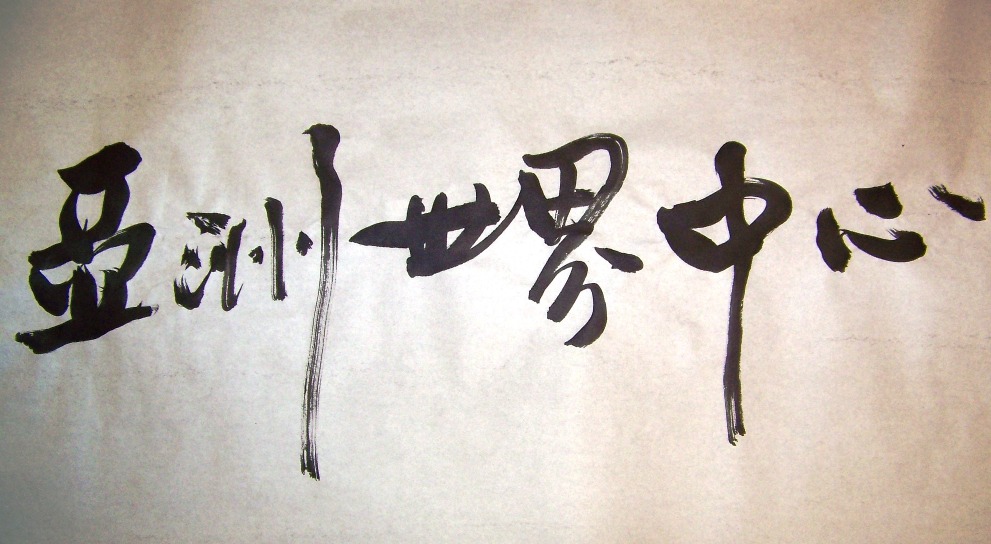 亞洲世界中心